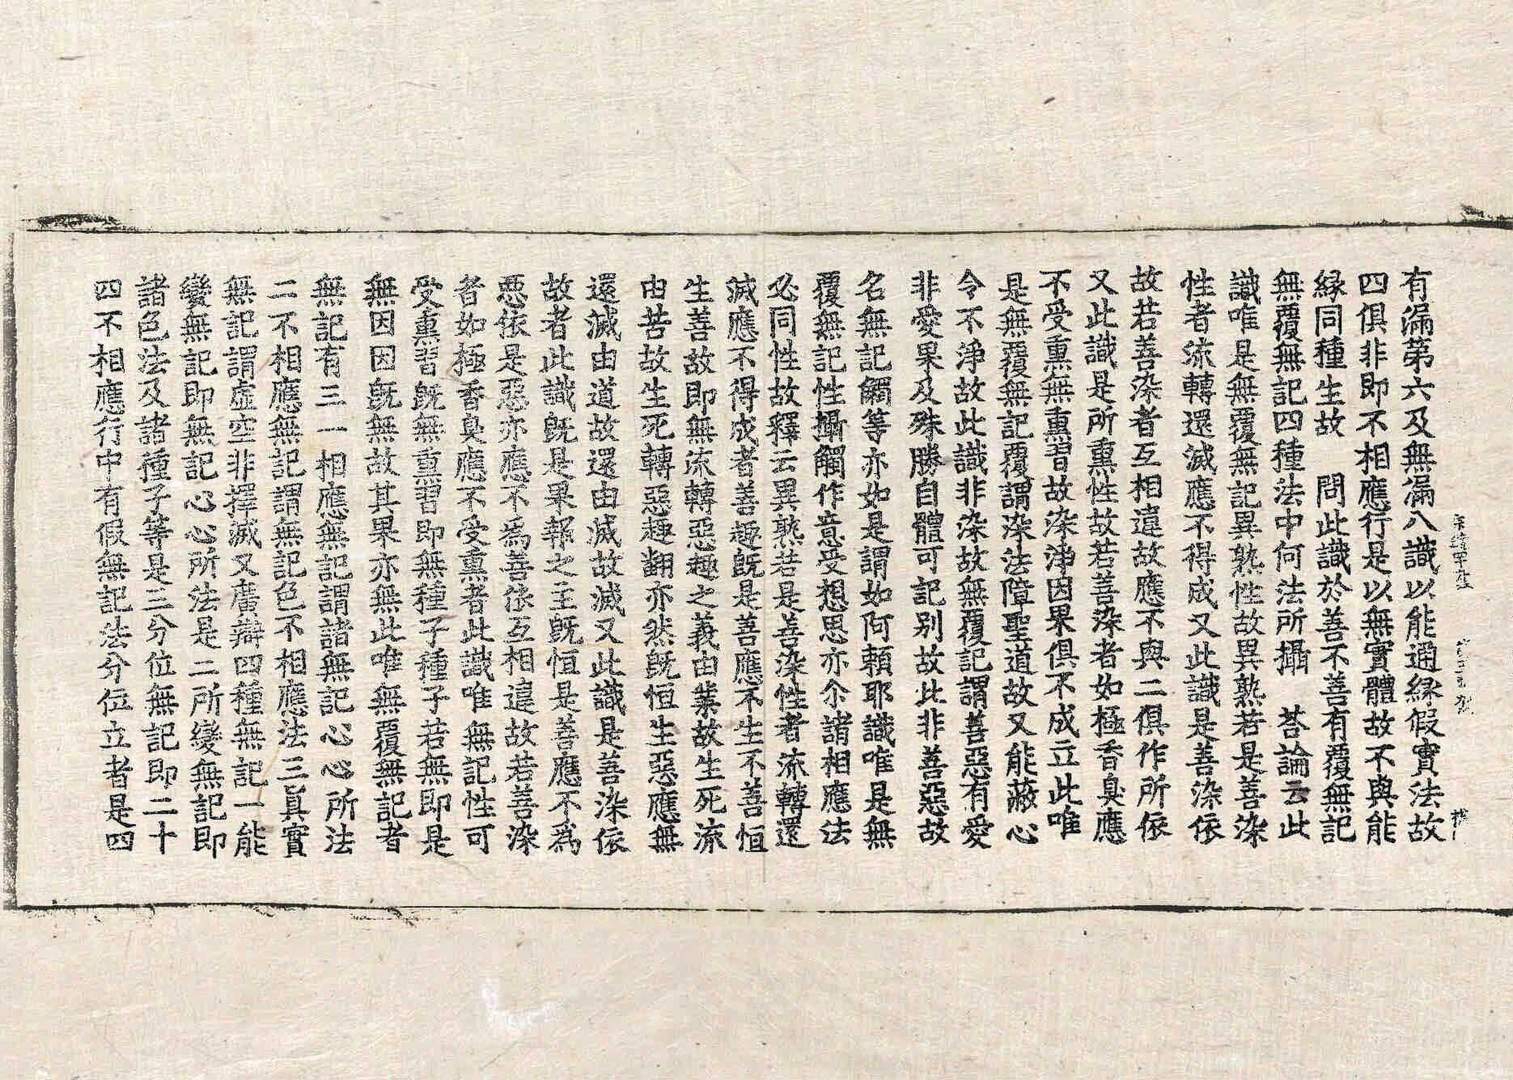 有漏第六及無漏八識以能通緣假實法故
四俱非即不相應行是以無實體故不與能
緣同種生故　問此識於善不善有覆無記
無覆無記四種法中何法所攝　荅論云此
識唯是無覆無記異熟性故異熟若是善染
性者流轉還滅應不得成又此識是善染依
故若善染者互相違故應不與二俱作所依
又此識是所熏性故若善染者如極香臭應
不受熏無熏習故染淨因果俱不成立此唯
是無覆無記覆謂染法障聖道故又能蔽心
令不淨故此識非染故無覆記謂善惡有愛
非愛果及殊勝自體可記别故此非善惡故
名無記觸等亦如是謂如阿頼耶識唯是無
覆無記性攝觸作意受想思亦尒諸相應法
必同性故釋云異熟若是善染性者流轉還
滅應不得成者善趣旣是善應不生不善恒
生善故即無流轉惡趣之義由業故生死流
由苦故生死轉惡趣翻亦然旣恒生惡應無
還滅由道故還由滅故滅又此識是善染依
故者此識旣是果報之主旣恒是善應不爲
惡依是惡亦應不爲善依互相違故若善染
者如極香臭應不受熏者此識唯無記性可
受熏習旣無熏習即無種子種子若無即是
無因因旣無故其果亦無此唯無覆無記者
無記有三一相應無記謂諸無記心心所法
二不相應無記謂無記色不相應法三眞實
無記謂虛空非擇滅又廣辯四種無記一能
變無記即無記心心所法是二所變無記即
諸色法及諸種子等是三分位無記即二十
四不相應行中有假無記法分位立者是四